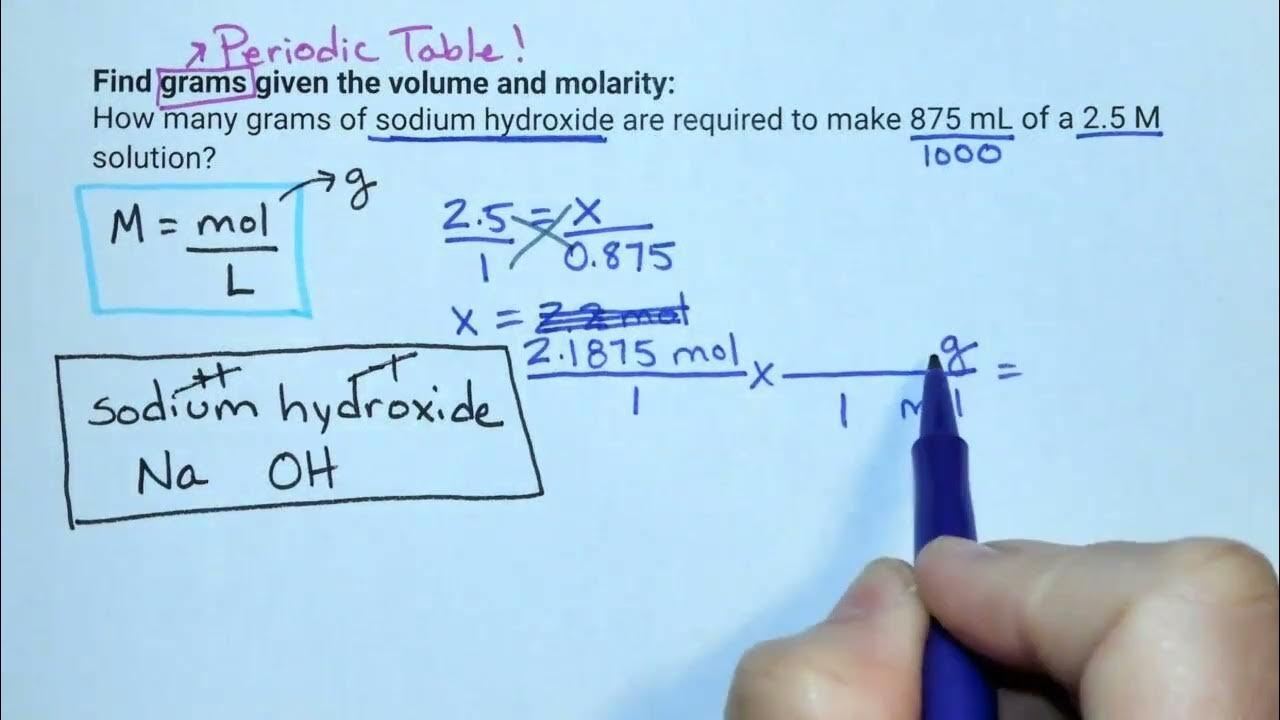 ↗ Periodic Table!
Find grams given the volume and molarity:
How many grams of sodium hydroxide are required to make 875 mL of a 2.5 M
1000
solution?
→ g
M = mol
L
2.5 = x
1 0.875
x = 2.2 mol
2.1875 mol x g =
1 1
sodium hydroxide
Na OH